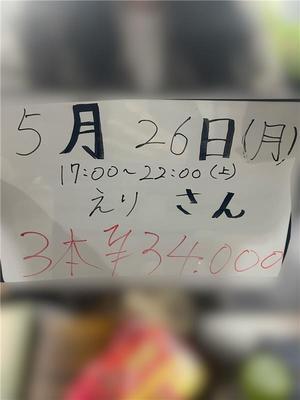 5月 26日(月)
17:00~22:00(土)
えり さん
3本 ¥34.000